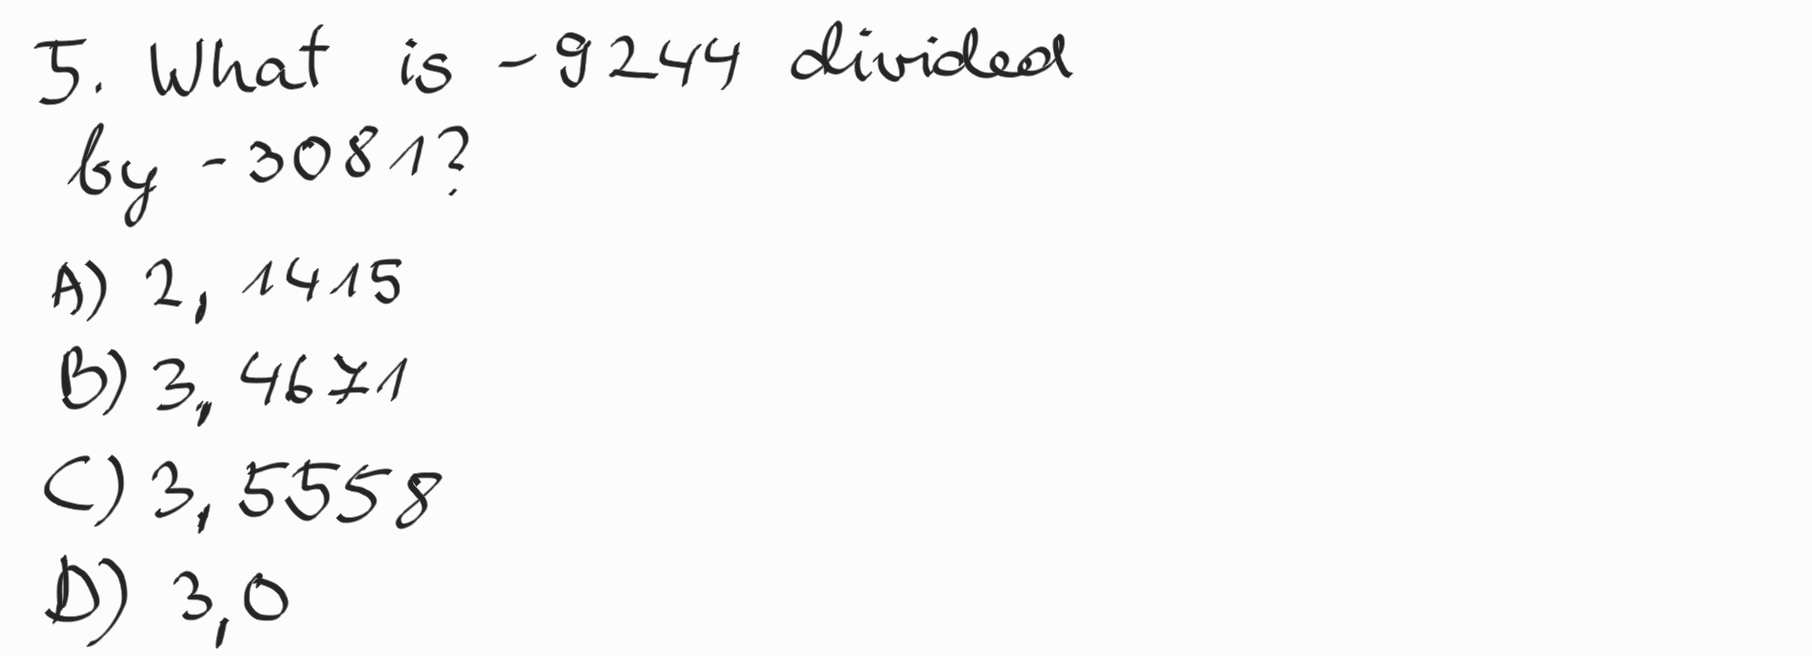 5. What is -9244 divided
by -3081?
A) 2,1415
B) 3,4671
C) 3,5558
D) 3,0